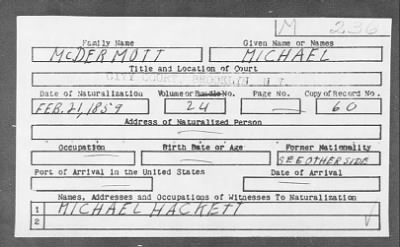 M 236
Family Name Given Name or Names
McDERMOTT MICHAEL
Title and Location of Court
CITY COURT, BROOKLYN, N.Y.
Date of Naturalization Volume or Bundle No. Page No. Copy of Record No.
FEB. 21, 1859 24 — 60
Address of Naturalized Person
Occupation Birth Date or Age Former Nationality
SEE OTHER SIDE
Port of Arrival in the United States Date of Arrival
Names, Addresses and Occupations of Witnesses To Naturalization
1 MICHAEL HACKETT
2